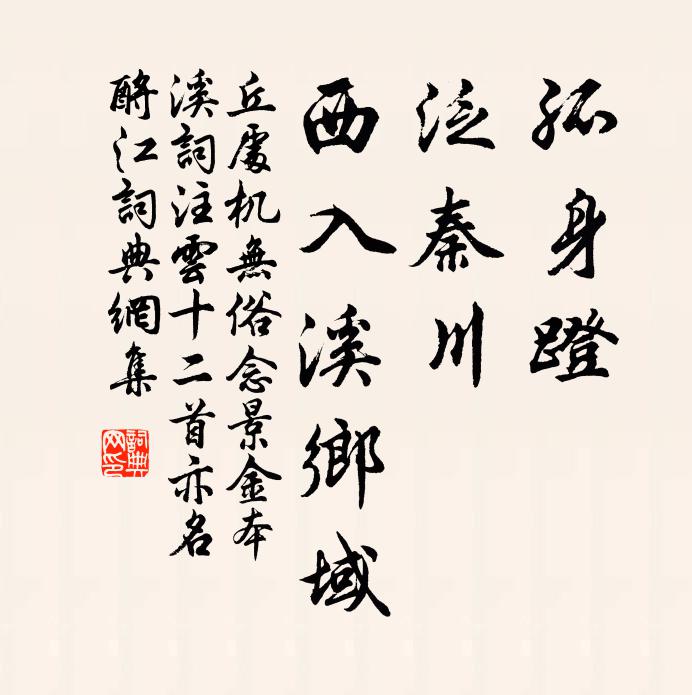 孤身蹬
泛秦川
西入溪鄉域
丘處机無俗念景金本
溪詞注雲十二首亦名
酹江詞典網集
詞典
网印